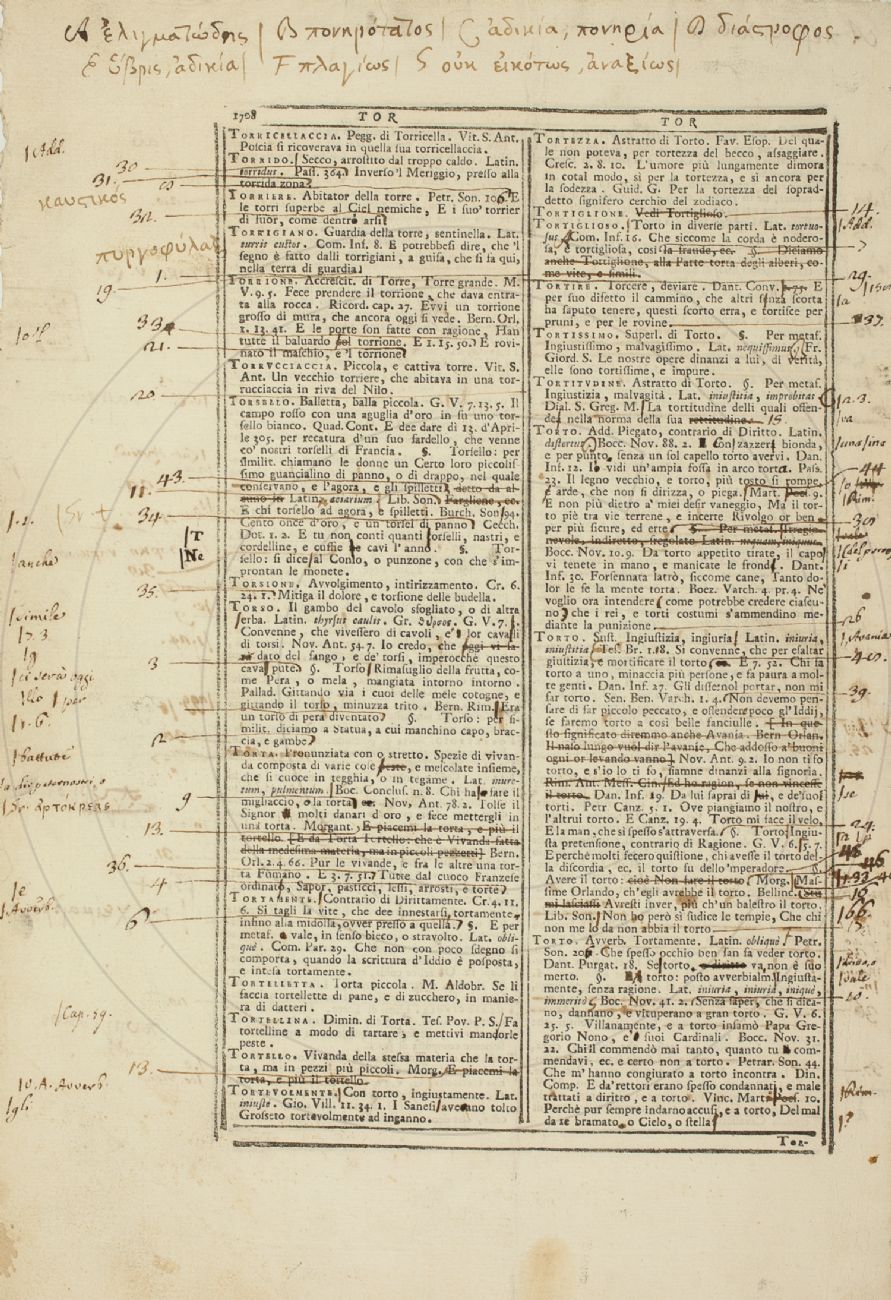 Α ἑλιγματώδης | Β πονηρότατος | C ἀδικία, πονηρία | D διάστροφος
E ὕβρις, ἀδικία | F πλαγίως | G οὐκ εἰκότως, ἀναξίως |
1708 TOR
TOR
TORRICELLACCIA. Pegg. di Torricella. Vit. S. Ant.
Poscia si ricoverava in quella sua torricellaccia.
TORRIDO. Secco, arrostito dal troppo caldo. Latin.
torridus. Pass. 364. Inverso 'l Meriggio, presso alla
torrida zona
TORRIERE. Abitator della torre. Petr. Son. 106. E
le torri superbe al Ciel nemiche, E i suo' torrier
di fuor, come dentro arsi
TORRIGIANO. Guardia della torre, sentinella. Lat.
turris custos. Com. Inf. 8. E potrebbesi dire, che 'l
segno è fatto dalli torrigiani, a guisa, che si fa qui,
nella terra di guardia
TORRIONE. Accrescit. di Torre, Torre grande. M.
V. 9. 5. Fece prendere il torrione, che dava entra-
ta alla rocca. Ricord. cap. 27. Evvi un torrione
grosso di mura, che ancora oggi si vede. Bern. Orl.
1. 13. 41. E le porte son fatte con ragione, Han
tutte il baluardo sol torrione. E 1. 15. 50. E rovi-
nato il maschio, e 'l torrione
TORRUCCIACCIA. Piccola, e cattiva torre. Vit. S.
Ant. Un vecchio torriere, che abitava in una tor-
rucciaccia in riva del Nilo.
TORSELLO. Balletta, balla piccola. G. V. 7. 13. 5. Il
campo rosso con una aguglia d'oro in su uno tor-
sello bianco. Quad. Cont. E dee dare dì 13. d'Apri-
le 305. per recatura d'un suo fardello, che venne
co' nostri torselli di Francia. §. Torsello: per
similit. chiamano le donne un Certo loro piccolis-
simo guancialino di panno, o di drappo, nel quale
conservano, e l'agora, e gli spilletti, detto da al-
Latin. aciarium. Lib. Son.
E chi torsello ad agora, e spilletti. Burch. Son. 94.
Cento once d'oro, e un torsel di panno. Cecch.
Dot. 1. 2. E tu non conti quanti torselli, nastri, e
cordelline, e cuffie le cavi l'anno. §. Tor-
sello: si dice al Conio, o punzone, con che s'im-
prontan le monete.
TORSIONE. Avvolgimento, intirizzamento. Cr. 6.
24. 1. Mitiga il dolore, e torsione delle budella.
TORSO. Il gambo del cavolo sfogliato, o di altra
erba. Latin. thyrsus caulis. Gr. θύρσος. G. V. 7.
Convenne, che vivessero di cavoli, e' lor cavalli
di torsi. Nov. Ant. 54. 7. Io credo, che
dato del fango, e de' torsi, imperocche questo
caval pute. §. Torso. Rimasuglio della frutta, co-
me Pera, o mela, mangiata intorno intorno.
Pallad. Gittando via i cuoi delle mele cotogne, e
gittando il torso, minuzza trito. Bern. Rim. Era
un torso di pera diventato. §. Torso: per si-
milit. diciamo a Statua, a cui manchino capo, brac-
cia, e gambe.
TORTA. Pronunziata con o stretto. Spezie di vivan-
da composta di varie cose peste, e mescolate insieme,
che si cuoce in tegghia, o in tegame. Lat. more-
tum, pulmentum. Boc. Conclus. n. 8. Chi ha a fare il
migliaccio, o la torta. Nov. Ant. 78. 2. Tolse il
Signor molti danari d'oro, e fece mettergli in
una torta. Morgant. E piacemi la torta, e più il
tortello. E da Torta Tortello: che è Vivanda fatta
della medesima materia, ma in piccoli pezzetti Bern.
Orl. 2. 4. 66. Pur le vivande, e fra le altre una tor-
ta Fumano. E 3. 7. 51. Tutte dal cuoco Franzese
ordinato, Sapor, pasticci, lessi, arrosti, e torte
TORTAMENTE. Contrario di Dirittamente. Cr. 4. 11.
6. Si tagli la vite, che dee innestarsi, tortamente,
insino alla midolla, ovver presso a quella. §. E per
metaf. vale, in senso bieco, o stravolto. Lat. obli-
què. Com. Par. 29. Che non con poco sdegno si
comporta, quando la scrittura d'Iddio è posposta,
e intesa tortamente.
TORTELLETTA. Torta piccola. M. Aldobr. Se li
faccia tortellette di pane, e di zucchero, in manie-
ra di datteri.
TORTELLINA. Dimin. di Torta. Tes. Pov. P. S. Fa
tortelline a modo di tartare, e mettivi mandorle
peste.
TORTELLO. Vivanda della stessa materia che la tor-
ta, ma in pezzi più piccoli. Morg. E piacemi la
torta, e più il tortello.
TORTEVOLMENTE. Con torto, ingiustamente. Lat.
iniuste. Gio. Vill. 11. 34. 1. I Sanesi aveano tolto
Grosseto tortevolmente ad inganno.
TORTEZZA. Astratto di Torto. Fav. Esop. Del qua-
le non poteva, per tortezza del becco, assaggiare.
Cresc. 2. 8. 10. L'umore più lungamente dimora
in cotal modo, sì per la tortezza, e sì ancora per
la sodezza. Guid. G. Per la tortezza del soprad-
detto signifero cerchio del zodiaco.
TORTIGLIONE. Vedi Tortiglioso.
TORTIGLIOSO. Torto in diverse parti. Lat. tortuo-
sus. Com. Inf. 16. Che siccome la corda è nodero-
sa, e tortigliosa, così la fraude, ec. §. Diciamo
anche Tortiglione, alla Parte torta degli alberi, co-
me vite, e simili.
TORTIRE. Torcere, deviare. Dant. Conv. 73. E
per suo difetto il cammino, che altri sanza scorta
ha saputo tenere, questi scorto erra, e tortisce per
pruni, e per le rovine.
TORTISSIMO. Superl. di Torto. §. Per metaf.
Ingiustissimo, malvagissimo. Lat. nequissimus. Fr.
Giord. S. Le nostre opere dinanzi a lui, di verità,
elle sono tortissime, e impure.
TORTITUDINE. Astratto di Torto. §. Per metaf.
Ingiustizia, malvagità. Lat. iniustitia, improbitas
Dial. S. Greg. M. La tortitudine delli quali offen-
de nella norma della sua rettitudine. 15.
TORTO. Add. Piegato, contrario di Diritto. Latin.
distortus. Bocc. Nov. 88. 2. Con zazzera bionda,
e per punto, senza un sol capello torto avervi. Dan.
Inf. 12. Io vidi un'ampia fossa in arco torta. Pass.
23. Il legno vecchio, e torto, più tosto si rompe,
e arde, che non si dirizza, o piega. Mart. Poes. 9.
E non più dietro a' miei desir vaneggio, Ma il tor-
to piè tra vie terrene, e incerte Rivolgo or ben
per più sicure, ed erte. §. Per metaf. Irragio-
nevole, indiretto, sregolato Latin. nequam, iniquus.
Bocc. Nov. 10. 9. Da torto appetito tirate, il capo
vi tenete in mano, e manicate le frondi. Dant.
Inf. 30. Forsennata latrò, siccome cane, Tanto do-
lor le fe la mente torta. Boez. Varch. 4. pr. 4. Ne
voglio ora intendere come potrebbe credere ciascu-
no che i rei, e torti costumi s'ammendino me-
diante la punizione
TORTO. Sust. Ingiustizia, ingiuria. Latin. iniuria,
iniustitia. Tes. Br. 1. 18. Si convenne, che per esaltar
giustizia, e mortificare il torto E 7. 52. Chi fa
torto a uno, minaccia più persone, e fa paura a mol-
te genti. Dan. Inf. 27. Gli dissenol portar, non mi
far torto. Sen. Ben. Varch. 1. 4. Non devemo pen-
sare di far piccolo peccato, e offender poco gl'Iddij,
se faremo torto a così belle fanciulle. In que-
sto significato diremmo anche Avanìa. Bern. Orlan.
Il naso lungo vuol dir l'avanìe, Che addosso a' buoni
ogni or levando vanno Nov. Ant. 9. 2. Io non ti fo
torto, e s'io lo ti fo, siamne dinanzi alla signoria.
Rim. Ant. Mess. Cin. Ed ho ragion, se non vincesse
il torto. Dan. Inf. 19. Da lui saprai di sui, e de' suoi
torti. Petr Canz. 5. 1. Ove piangiamo il nostro, e
l'altrui torto. E Canz. 19. 4. Torto mi face il velo,
E la man, che si spesso s'attraversa. §. Torto. Ingiu-
sta pretensione, contrario di Ragione. G. V. 6. 5. 7.
E perchè molti fecero quistione, chi avesse il torto del-
la discordia, ec. il torto fu dello 'mperadore. §.
Avere il torto: cioè Non fare il torto. Morg. Mas-
sime Orlando, ch'egli avrebbe il torto. Bellinc. Sta
mi lasciassi Avresti inver, più ch'un balestro il torto.
Lib. Son. Non ho però sì sudice le tempie, Che chi
non me lo da non abbia il torto
TORTO. Avverb. Tortamente. Latin. obliquè. Petr.
Son. 206. Che spesso occhio ben san fa veder torto.
Dant. Purgat. 18. Se torto, o diritto va, non è suo
merto. §. A torto: posto avverbialm. Ingiusta-
mente, senza ragione. Lat. iniuria, iniuria, iniquè,
immeritò. Boc. Nov. 41. 2. Senza saper, che si dica-
no, dannano, e vituperano a gran torto. G. V. 6.
25. 5. Villanamente, e a torto infamò Papa Gre-
gorio Nono, e' suoi Cardinali. Bocc. Nov. 31.
22. Chi il commendò mai tanto, quanto tu il com-
mendavi, ec. e certo non a torto. Petrar. Son. 44.
Che m'hanno congiurato a torto incontra. Din.
Comp. E da' rettori erano spesso condannati, e male
trattati a diritto, e a torto. Vinc. Mart. Poes. 10.
Perchè pur sempre indarno accusi, e a torto, Del mal
da te bramato, o Cielo, o stella
Tor-
Add.
30
31.
καυστικος
32.
πυργοφύλαξ
1.
19
33
21.
20
43.
11.
34
T
Ne
anche
35.
simile
3
2
battuta
9
ἀρτοκρεας
13.
36.
4
Avverb.
6
Cap. 29.
13.
D. A. Avverb
gli
14.
Add.
29
37.
2. 3.
44
Rim.
30
26
Avania
40.
39.
se
24.
46
166
Rim.